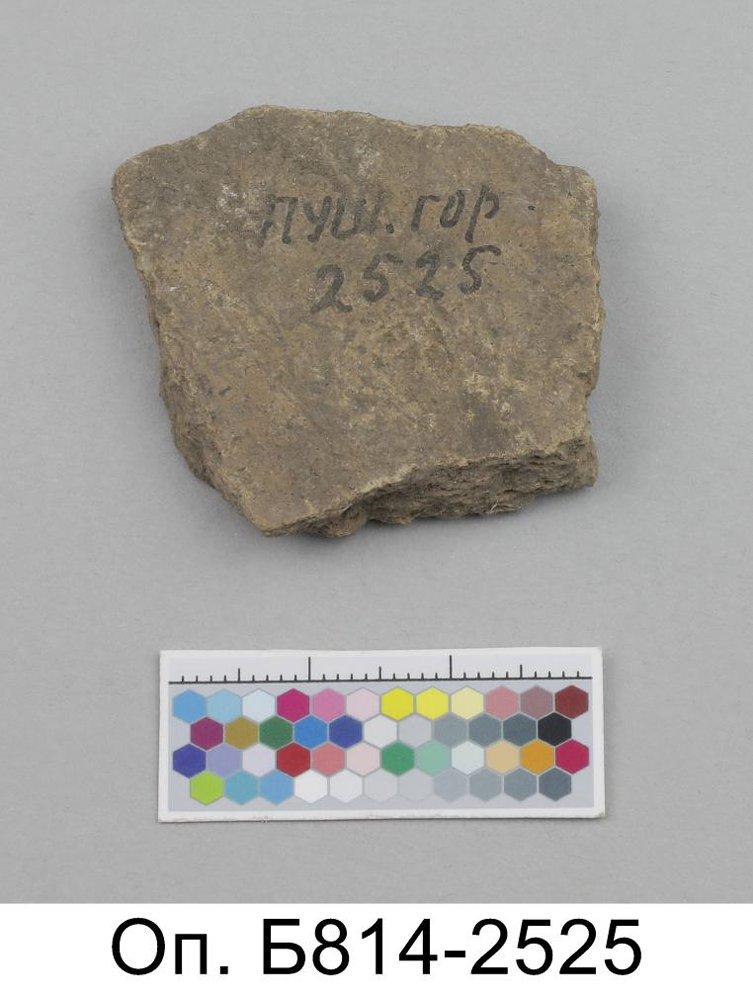 ПУШ. ГОР.
2525
Оп. Б814-2525